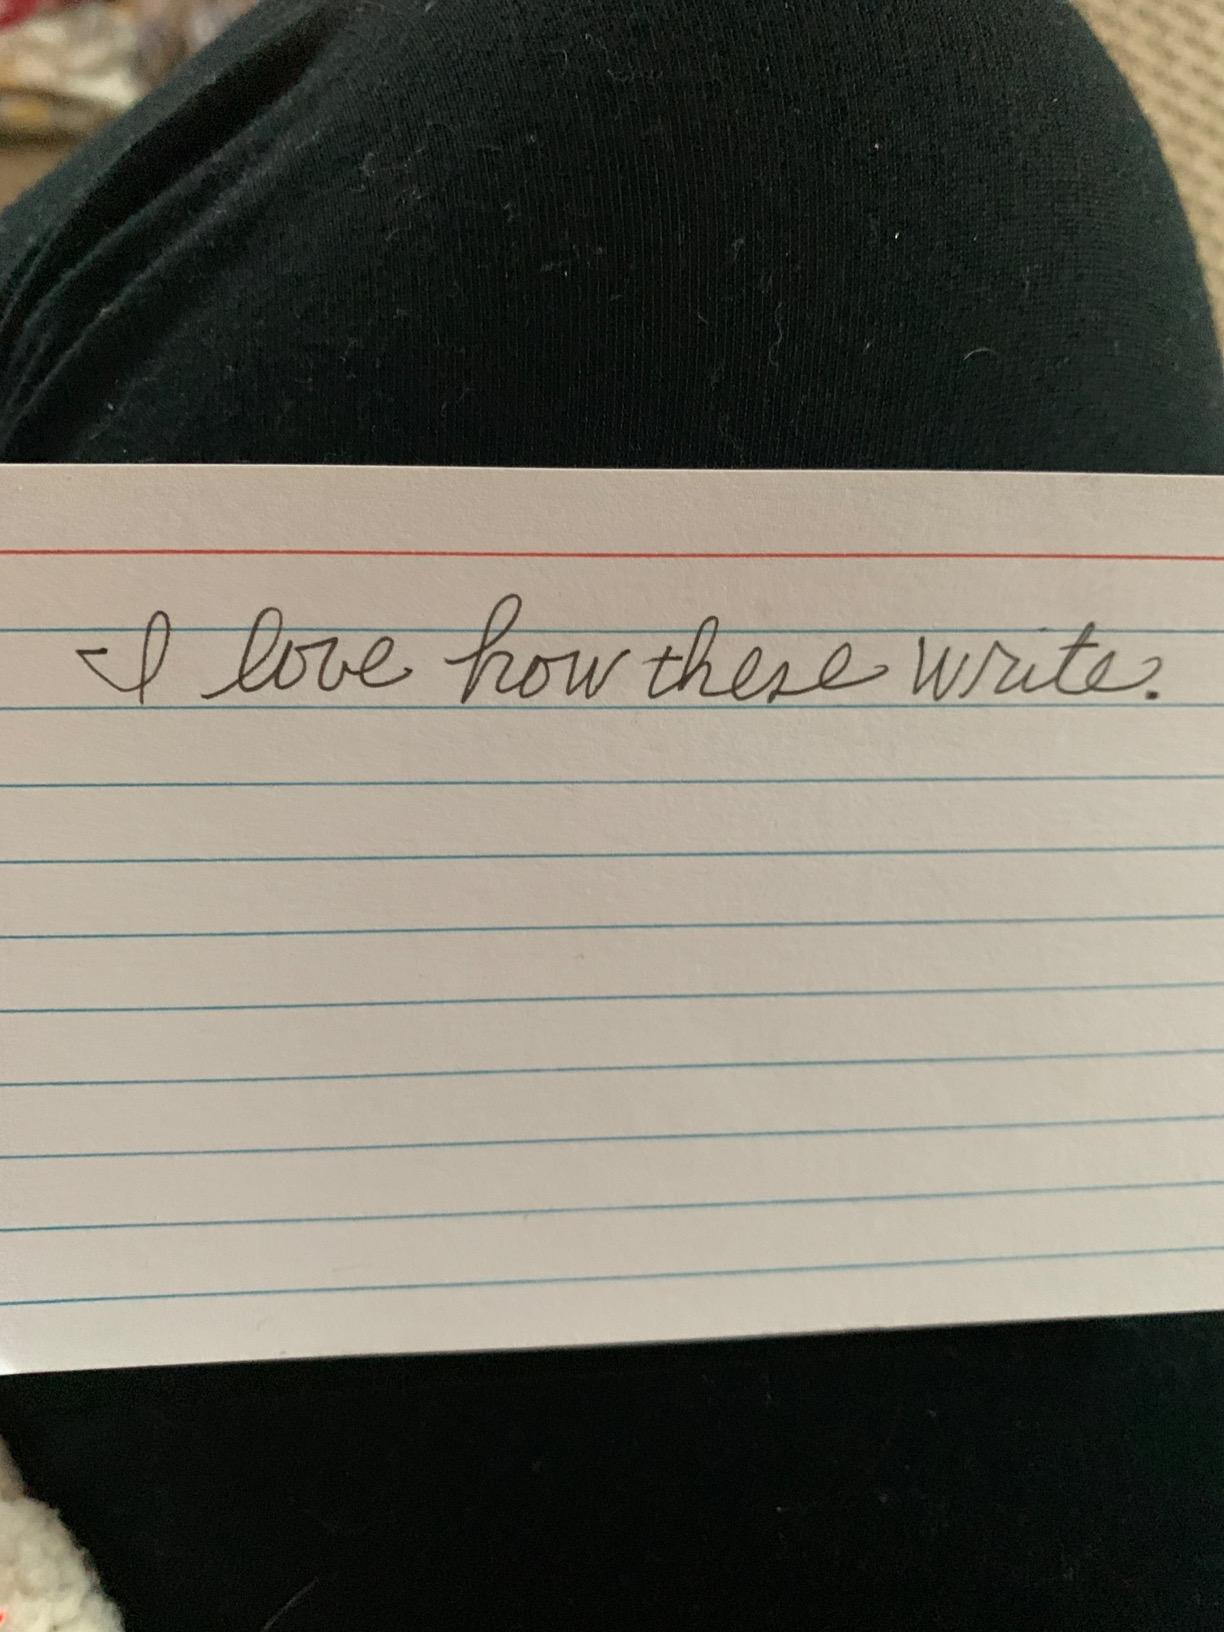 I love how these write.